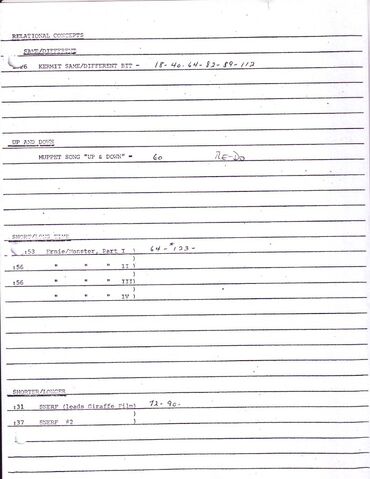 RELATIONAL CONCEPTS
SAME/DIFFERENT
:26 KERMIT SAME/DIFFERENT BIT - 18-40-64-82-89-112
UP AND DOWN
MUPPET SONG "UP & DOWN" - 60 RE-DO
SHORT/LONG TIME
:53 Ernie/Monster, Part I ) 64-*123-
)
:56 " " " II )
)
:56 " " " III)
)
" " " IV )
SHORTER/LONGER
:31 SNERF (leads Giraffe Film) 72-90-
)
:37 SNERF #2 )